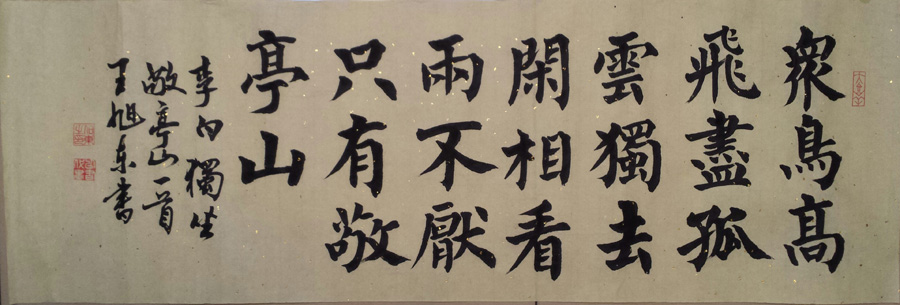 衆鳥髙
飛盡孤
雲獨去
閑相看
兩不厭
只有敬
亭山
李白獨坐
敬亭山一首
王旭东書